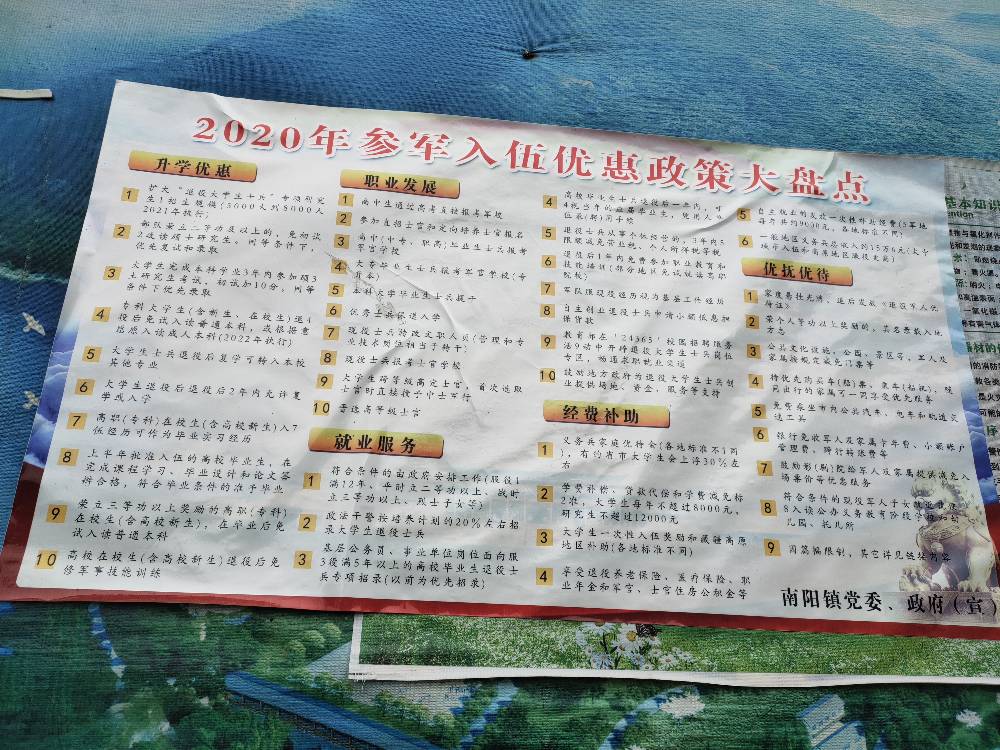 2020年参军入伍优惠政策大盘点
升学优惠
1 扩大“退役大学生士兵”专项研究
生1招生规模(5000人到8000人
2021年执行)
2 部队荣立二等功及以上的，免初试
攻读硕士研究生，同等条件下，
优先复试和录取
3 大学生完成本科学业3年内参加硕3
士研究生考试，初试加10分，同等
条件下优先录取
4 专科大学生(含新生、在校生)退4
役后免试入读普通本科，或根据意
愿原入读成人本科(2022年执行)
5 大学生士兵退役后复学可转入本校
其他专业
6 大学生退役后退役后2年内允许复
学或入学
7 高职(专科)在校生(含高校新生)入7
伍经历可作为毕业实习经历
8 上半年批准入伍的高校毕业生，在
完成课程学习、毕业设计和论文答
辩合格，符合毕业条件的准予毕业
9 荣立三等功以上奖励的高职(专科)
在校生(含高校新生)，在毕业后免
试入读普通本科
10 高校在校生(含高校新生)退役后免
修军事技能训练
职业发展
1 高中生通过高考直接报考军校
2 参加直招士官和定向培养士官报名
3 高中(中专、职高)毕业生士兵报考
军官学校
4 大专毕业生士兵报考军官学校(专
升本)
5 本科大学毕业生士兵提干
6 优秀士兵保送入学
7 现役士兵特改文职人员(管理和专
业技术岗位相当于特干)
8 现役士兵报考士官学校
9 大学生跨等级高定士官，首次选取
士官时直接授予中士军衔
10 晋选高等级士官
就业服务
1 符合条件的由政府安排工作(服役1
满12年、平时立二等功以上、战时
立三等功以上、烈士子女等)
2 政法干警按培养计划的20%左右招
录大学生退役士兵
3 基层公务员、事业单位岗位面向服
3役满5年以上的高校毕业生退役士
兵专项招录(以前为优先招录)
4 高校毕业生士兵退役后一年内，可
4视为当年的应届毕业生，凭用人单
位录(聘)用手续
5 退役士兵从事个体经营的，3年内5
限额减免营业税、个人所得税等税
6 退役后1年内免费参加职业教育和
技能培训(部分地区免试就读高职
院校)
7 军队服现役经历视为基层工作经历
8 自主创业退役士兵申请小额低息担
保贷款
9 教育部在“24365”校园招聘服务
活9动中开辟退役大学生士兵岗位
专区，畅通求职就业渠道
10 鼓励地方政府为退役大学生士兵创
业提供场地、资金、服务等支持
经费补助
1 义务兵家庭优待金(各地标准不1同
)，有的省市大学生会上浮30%左
右
2 学费补偿、贷款代偿和学费减免标
2准，大学生每年不超过8000元，
研究生不超过12000元
3 大学生一次性入伍奖励和藏疆高原
地区补助(各地标准不同)
4 享受退役养老保险、医疗保险、职
业年金和军官、士官住房公积金等
5 自主就业的发放一次性补助经费(5某地
每年共约9000元，各地标准不同)
6 一般地区义务兵总收入约15万6元(大学
生入伍和高原地区激役更高)
优抚优待
1 家庭悬挂光荣，退后发放《退役军人优
待证》
2 荣个人等功以上奖励的，其名费载入地
方志
3 公共文化设施，公园、景区等，军人及
家属按规定减免门票等
4 持优先购买车(船)票、乘车(船机)，陪
同出行的家属可一同享受优先服务
5 免费乘坐市内公共汽车、电车和轨道交
通工具
6 银行免收军人及家属卡年费、小额帐户
管理费、跨行转账费等
7 鼓励影(剧)院给军人及家属提供减免入
场票价等优惠服务
8 符合条件的现役军人子女就业就近
8入读公办义务教育阶段学校和幼
儿园、托儿所
9 因篇幅限制，其它详见链接方案
南阳镇党委、政府（宣）
基本知识